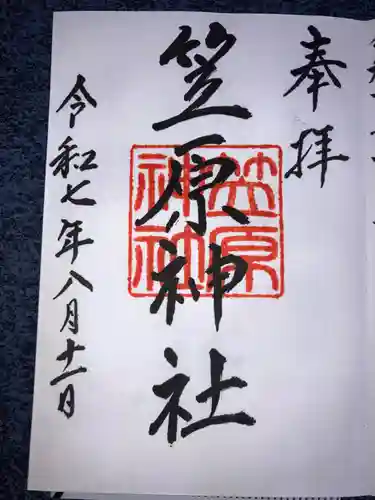 奉拝
笠原神社
笠原
神社
令和七年八月十一日